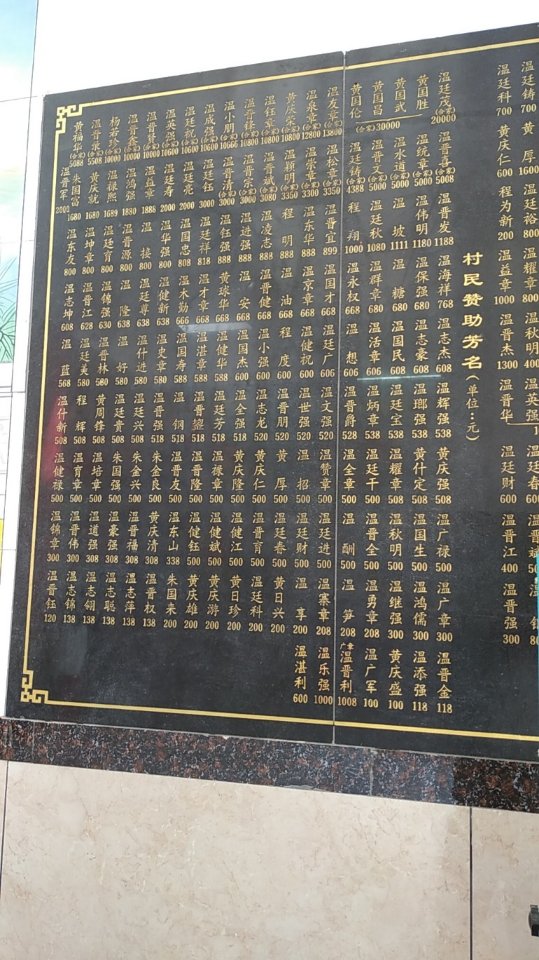 温廷铸 700
温廷科 700
黄厚 1600
黄庆仁 600
程为新 200
温廷裕 800
温耀章 1000
温益章 800
温秋明 400
温晋杰 1300
温晋华
温廷财 600
温晋江 400
温晋强 300
村民赞助芳名(单位:元)
温廷茂(合家) 20000
黄国胜
黄国武
黄国昌(合家) 30000
黄国伦
温友章(合家) 13600
温泉章(合家) 12800
黄庆荣(合家) 10800
温钰章(合家) 10800
温晋锋(合家) 10800
温小朋(合家) 10666
温成强(合家) 10600
温廷祝(合家) 10600
温英强(合家) 10600
温晋锋(合家) 10000
温晋鑫(合家) 10000
杨若珍(合家) 10000
温晋荣(合家) 5508
黄福华(合家) 5088
温晋喜(合家) 5008
温统章(合家) 5000
温水道(合家) 5000
温晋日(合家) 5000
温廷铸(合家) 4388
温松章(合家) 3350
温崇章(合家) 3300
温颖明(合家) 3350
温晋斌(合家) 3080
温晋宗(合家) 3000
温晋清(合家) 3000
温廷钰 2000
温廷亮 2000
温廷寿 2000
温益章 1888
温鸿强 1888
温禄熙 1689
黄庆就 1680
朱国富 1680
温晋军 2001
温晋发 1188
温伟明 1180
温坡 1111
温廷秋 1080
程翔 1000
温晋宜 899
温东华 888
程明 888
温凌志 888
温进强 888
温钰强 888
温廷祥 818
温国忠 808
温华强 800
温接 800
温晋源 800
温廷育 800
温坤章 800
温东友 800
温海祥 768
温保强 680
温糖 680
温群章 680
温永权 668
温国才 668
温京章 668
温油 668
温晋健 668
温安 668
黄球华 668
温才章 668
温木勤 666
温健新 638
温廷尊 638
温隆 630
温锦强 630
温晋江 628
温志坤 608
温志杰 608
温志豪 608
温国民 608
温活章 608
温想 606
温廷广 600
温健祝 600
程度 600
温小强 600
温国杰 600
温健华 588
温湛章 588
温国寿 588
温史章 588
温什进 588
温好 588
温晋林 580
温廷美 580
温蓝 568
温辉强 538
温瑯强 538
温廷宝 538
温炳章 538
温晋爵 528
温文强 520
温世强 520
温晋朋 520
温志龙 520
温全强 508
温廷芳 508
温晋鎏 508
温钢 508
温晋强 508
温廷兴 508
温廷贵 508
黄周锋 508
程辉 508
温什新 508
黄庆强 508
黄什定 508
温耀章 500
温廷干 500
温全章 500
温赞章 500
温招 500
黄厚 500
黄庆仁 500
黄庆隆 500
温禄章 500
温晋隆 500
温晋友 500
朱金良 500
朱金兴 500
朱国强 500
温培章 500
温育章 500
温健禄 500
温广禄 500
温国生 500
温秋明 500
温晋全 500
温酬 500
温廷进 500
温廷财 500
温廷春 500
温晋育 500
温健江 500
温健斌 500
温健钰 500
温东山 338
黄庆清 308
温晋福 308
温豪强 308
温道强 308
温晋伟 300
温锦章 300
温广章 300
温鸿儒 300
温继强 300
温勇章 208
温笋 208
温寨章 208
温享 208
黄日兴 200
温廷科 200
黄日珍 200
黄庆游 200
黄庆雄 200
朱国来 200
温晋权 138
温志萍 138
温志聪 138
温志翎 138
温志锦 138
温晋钰 120
温晋金 118
温添强 118
黄庆盛 100
温广军 100
广章 温晋利 1008
温乐强 1000
温湛利 600